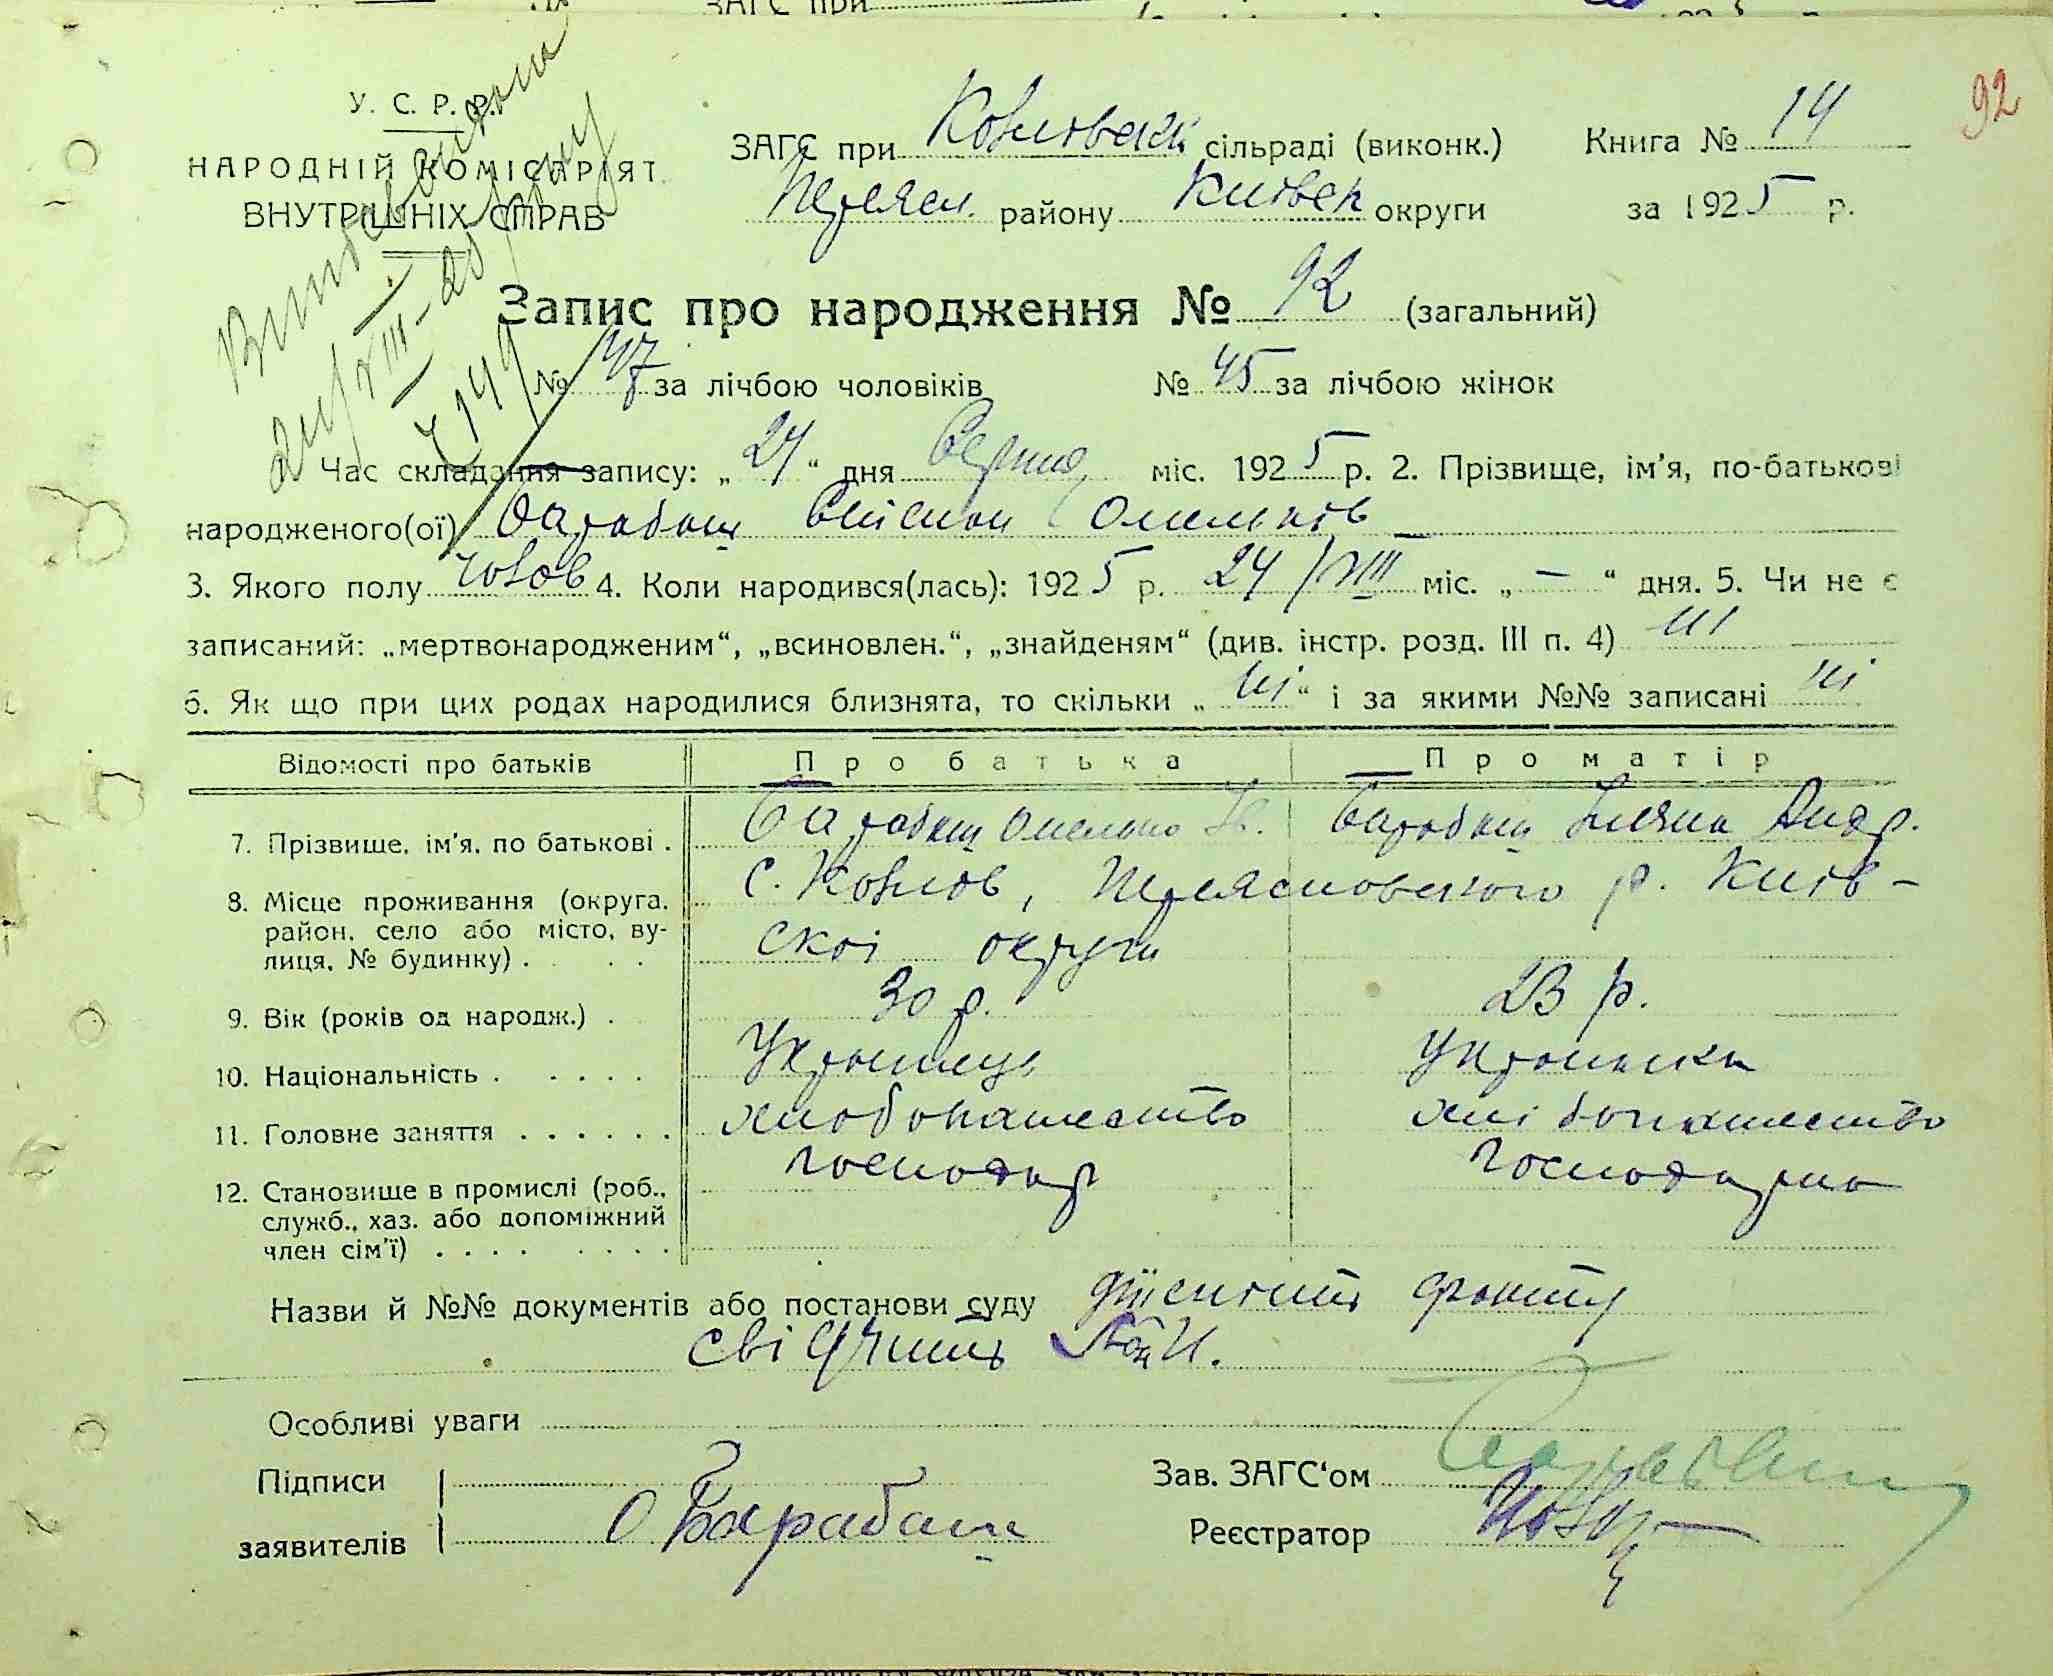 У. С. Р. Р.
НАРОДНІЙ КОМІСАРІЯТ
ВНУТРІШНІХ СПРАВ
ЗАГС при Козлівскі сільраді (виконк.) Книга № 14
92
Переясл. району Київск округи за 1925 р.
Запис про народження № 92 (загальний)
№ 47 за лічбою чоловіків № 45 за лічбою жінок
Час складання запису: „ 24 “ дня Серпня міс. 1925 р. 2. Прізвище, ім'я, по-батькові
народженого(ої) Барабаш Омельків
3. Якого полу чолов 4. Коли народився(лась): 1925 р. 24/VIII міс. „ — “ дня. 5. Чи не є
записаний: „мертвонародженим“, „всиновлен.“, „знайденям“ (див. інстр. розд. III п. 4) ні
6. Як що при цих родах народилися близнята, то скільки „ ні “ і за якими №№ записані ні
Відомості про батьків Про батька Про матір
7. Прізвище, ім'я, по батькові . Барабаш Омелько Ів. Барабаш Андр.
8. Місце проживання (округа, район, село або місто, вулиця, № будинку) . . . с. Козлов, Переясловського р. Київ-
скоі округи
9. Вік (років од народж.) . 30 р. 23 р.
10. Національність . . . . . Украінець Украінка
11. Головне заняття . . . . . . хлібопашество хлібопашество
12. Становище в промислі (роб.,
служб., хаз. або допоміжний
член сім'ї) . . . . . . . . господар господарка
Назви й №№ документів або постанови суду дійсність факту
свідчить
Особливі уваги
Підписи Зав. ЗАГС'ом
заявителів О Барабаш Реєстратор